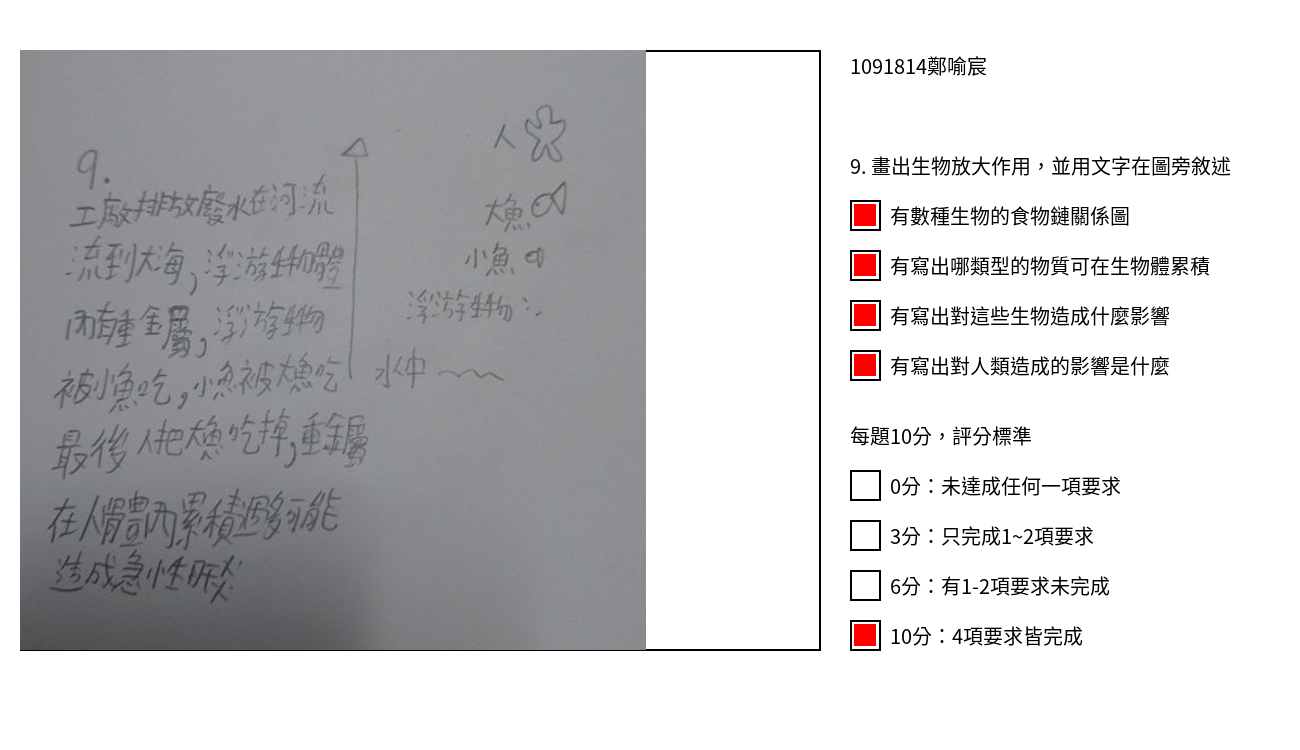 9.
工廠排放廢水在河流
流到大海,浮游生物體
內有重金屬,浮游生物
被小魚吃,小魚被大魚吃
最後人把大魚吃掉,重金屬
在人體內累積過多可能
造成急性腎炎
人
大魚
小魚
浮游生物
水中
1091814鄭喻宸
9. 畫出生物放大作用，並用文字在圖旁敘述
有數種生物的食物鏈關係圖
有寫出哪類型的物質可在生物體累積
有寫出對這些生物造成什麼影響
有寫出對人類造成的影響是什麼
每題10分，評分標準
0分：未達成任何一項要求
3分：只完成1~2項要求
6分：有1-2項要求未完成
10分：4項要求皆完成